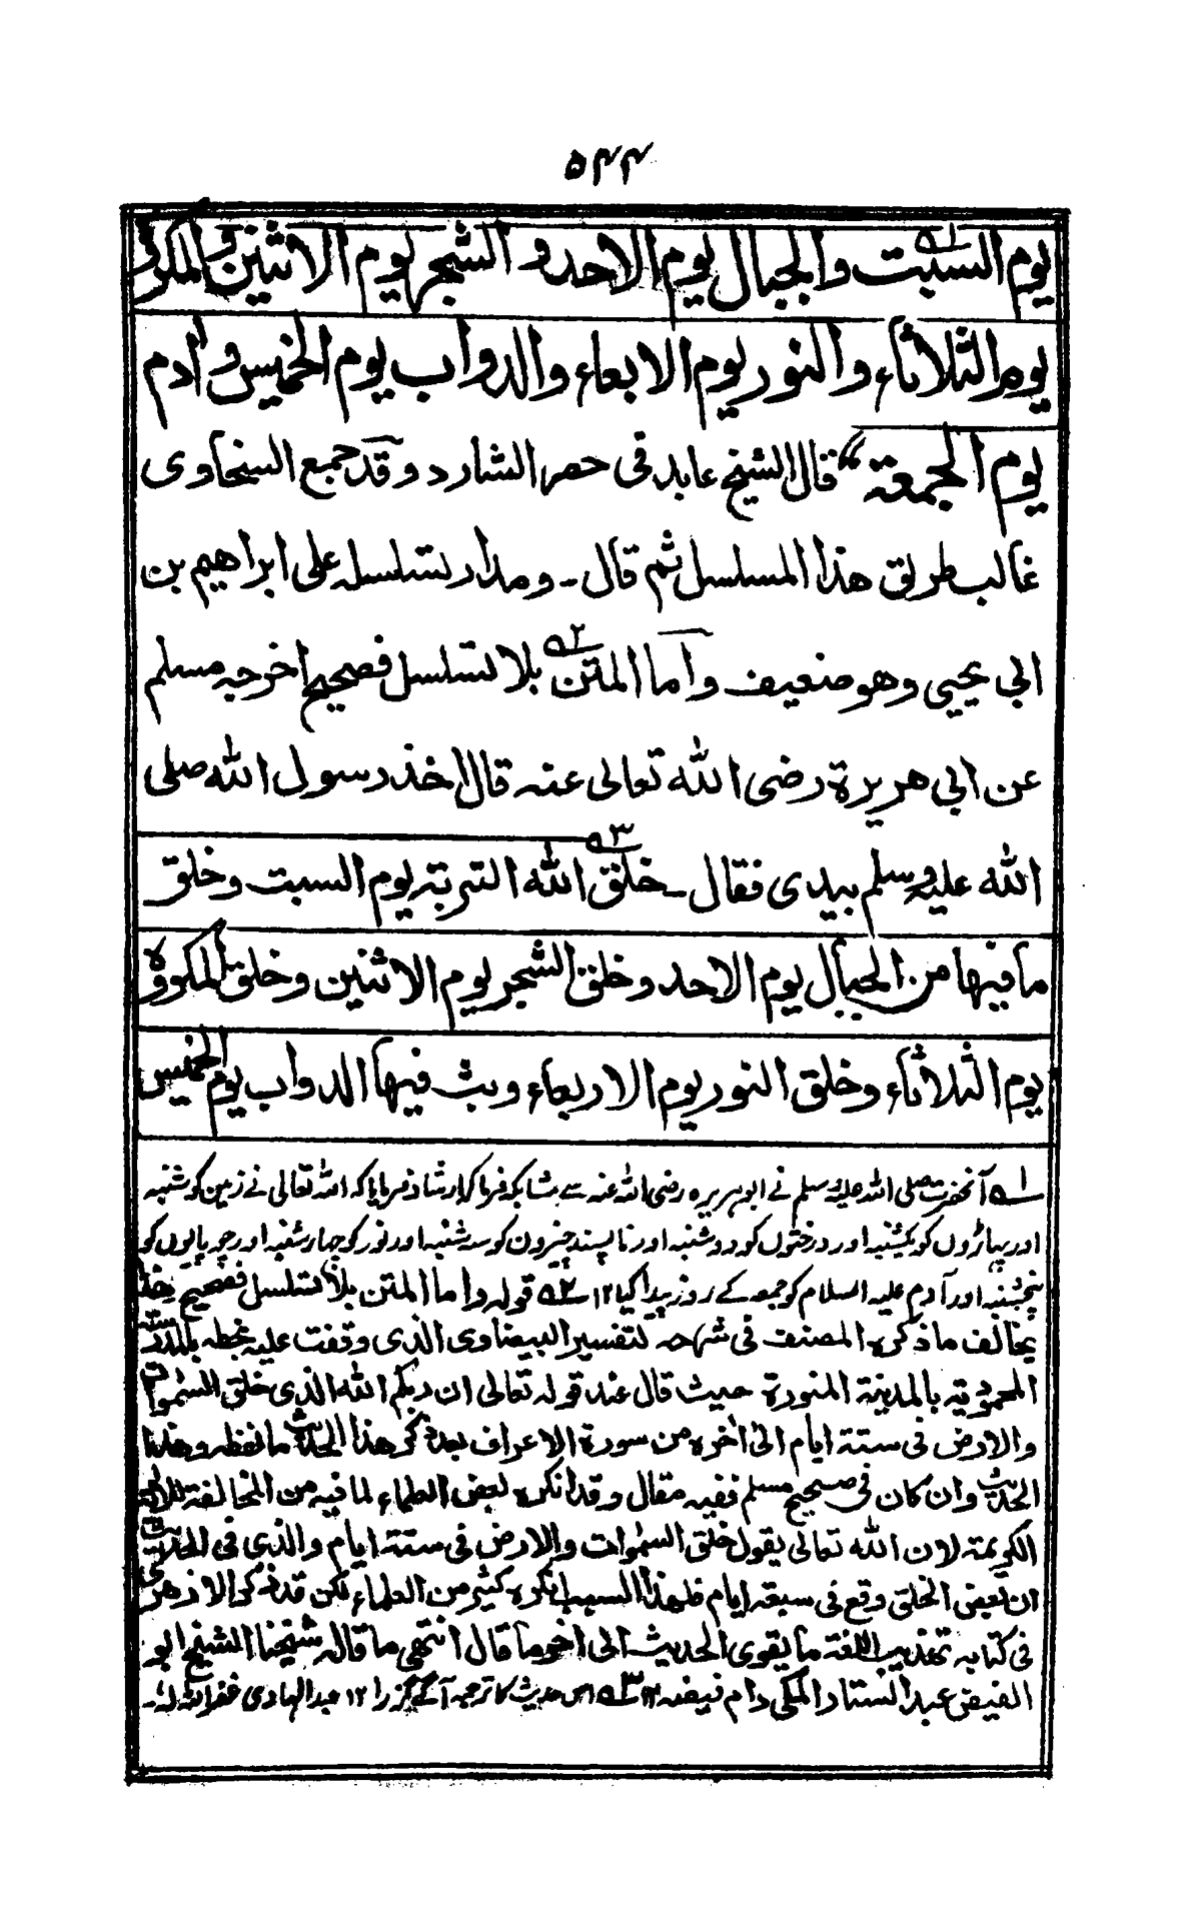 ۵۴۴
يوم السبت والجبال يوم الاحد و الشجر يوم الاثنين والمكروه
يوم الثلاثاء والنور يوم الابعاء والدواب يوم الخميس و ادم
يوم الجمعة" قال الشيخ عابد فى حصر الشارد وقد جمع السخاوى
غالب طريق هذا المسلسل ثم قال - ومدار تسلسله على ابراهيم بن
ابى يحيى وهو ضعيف واما المتن ٢ بلا تسلسل فصحيح اخرجه مسلم
عن ابى هريرة رضى الله تعالى عنه قال اخذ رسول الله صلى
الله عليه وسلم بيدى فقال - خلق ٣ الله التربة يوم السبت وخلق
ما فيها من الجبال يوم الاحد وخلق الشجر يوم الاثنين وخلق المكروه
يوم الثلاثاء وخلق النور يوم الاربعاء وبث فيها الدواب يوم الخميس
١ آنحضرت صلی اللہ علیہ وسلم نے ابوہریرہ رضی اللہ عنہ سے مشابکہ فرما کر ارشاد فرمایا کہ اللہ تعالیٰ نے زمین کو شنبہ
اور پہاڑوں کو یکشنبہ اور درختوں کو دوشنبہ اور ناپسند چیزوں کو سہ شنبہ اور نور کو چہارشنبہ اور چوپایوں کو
پنجشنبہ اور آدم علیہ السلام کو جمعہ کے روز پیدا کیا ۱۲ ٢ قوله واما المتن بلا تسلسل فصحيح هذا
يخالف ما ذكره المصنف فى شرحه لتفسير البيضاوى الذى وقفت عليه بخطه بالمدرسة
المحمودية بالمدينة المنورة حيث قال عند قوله تعالى ان ربكم الله الذى خلق السموات
والارض فى ستة ايام الى اخره من سورة الاعراف بعد ذكر هذا الحديث ما لفظه وهذا
الحديث وان كان فى صحيح مسلم ففيه مقال وقد انكره بعض العلماء لما فيه من المخالفة للاية
الكريمة لان الله تعالى يقول خلق السموات والارض فى ستة ايام والذى فى الحديث
ان بعض الخلق وقع فى سبعة ايام فلهذا السبب انكره كثير من العلماء لكن قد ذكر الازهرى
فى كتابه تهذيب اللغة ما يقوى الحديث الى اخر ما قال انتهى ما قاله شيخنا الشيخ ابو
الفيض عبد الستار المكى دام فيضه ۱۲ ٣ اس حدیث کا ترجمہ آگے گزرا ۱۲ عبد الہادی غفر اللہ لہ۔